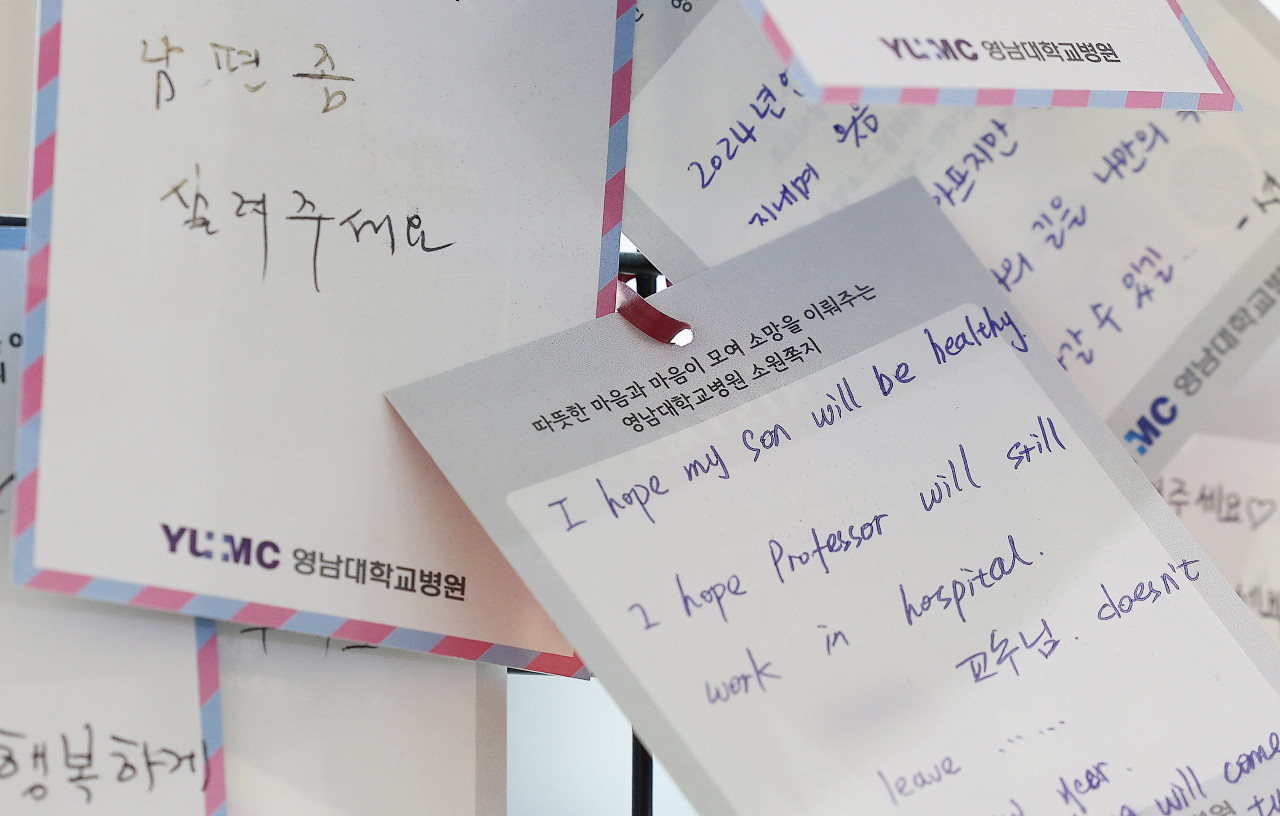 남편좀
살려주세요
YUMC 영남대학교병원
YUMC 영남대학교병원
2024년
지네며 웃음
아프지만
나만의
길을
갈 수 있길..
MC 영남대학교병
주세요♡
따뜻한 마음과 마음이 모여 소망을 이뤄주는
영남대학교병원 소원쪽지
I hope my son will be healthy
I hope Professor will still
work in hospital.
교수님. doesn't
leave ......
year.
will come
행복하게